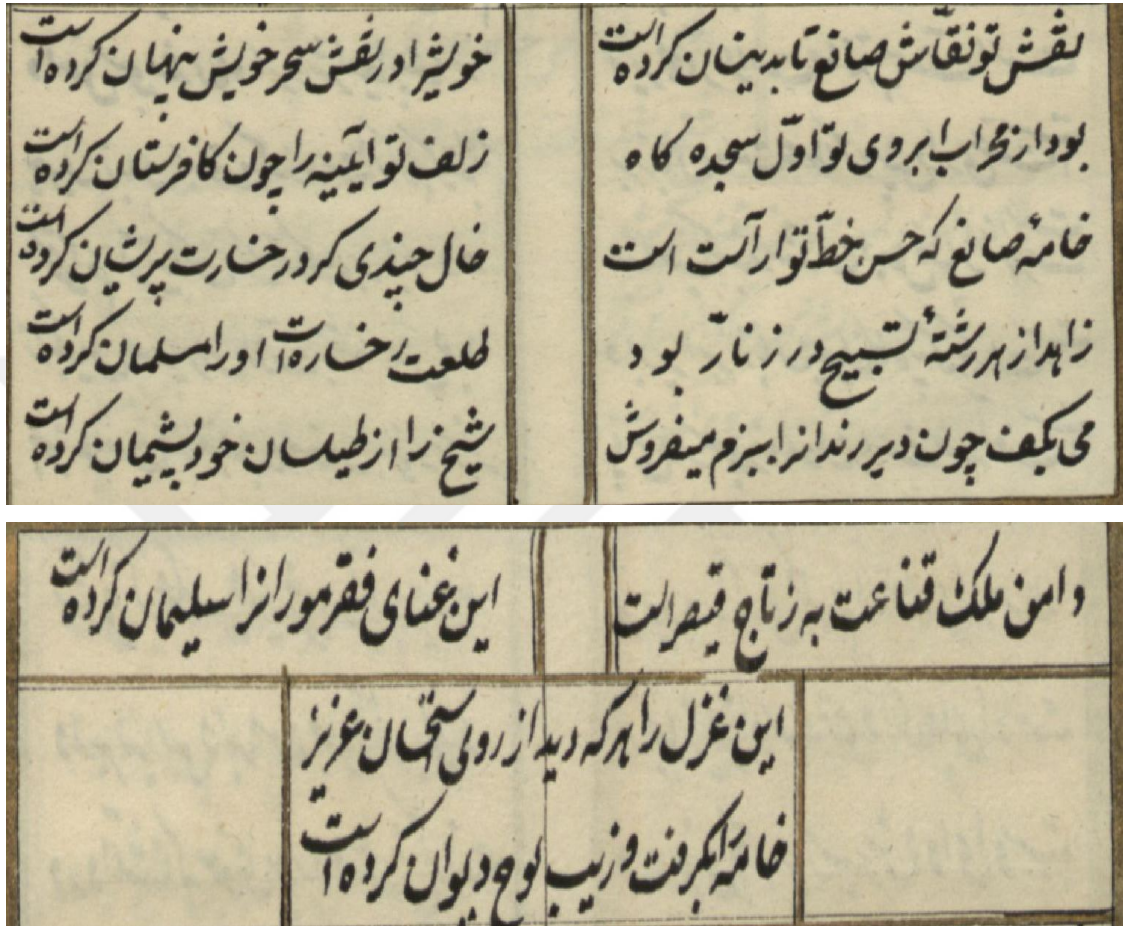 نقش تو نقّاش صانع تا بدینسان کرده است
خویش را در نقش سحر خویش پنهان کرده است
بود از محراب ابروی تو اوّل سجده کاه
زلف تو آیینه را چون کافرستان کرده است
خامهٔ صانع که حسن خطّ تو آراست است
خال چندی کرد رخسارت پریشان کرده است
زاهد از هر رشتهٔ تسبیح در زنّار بود
طلعت رخساره‌ات او را مسلمان کرده است
می بکف چون دیر رندانرا ببزم میفروش
شیخ را از طیلسان خود پشیمان کرده است
و امن ملک قناعت به ز تاج قیصر است
این غنای فقر مورانرا سلیمان کرده است
این غزل را هر که دید از روی استحسان عزیز
خامه را بگرفت و زیب لوح دیوان کرده است